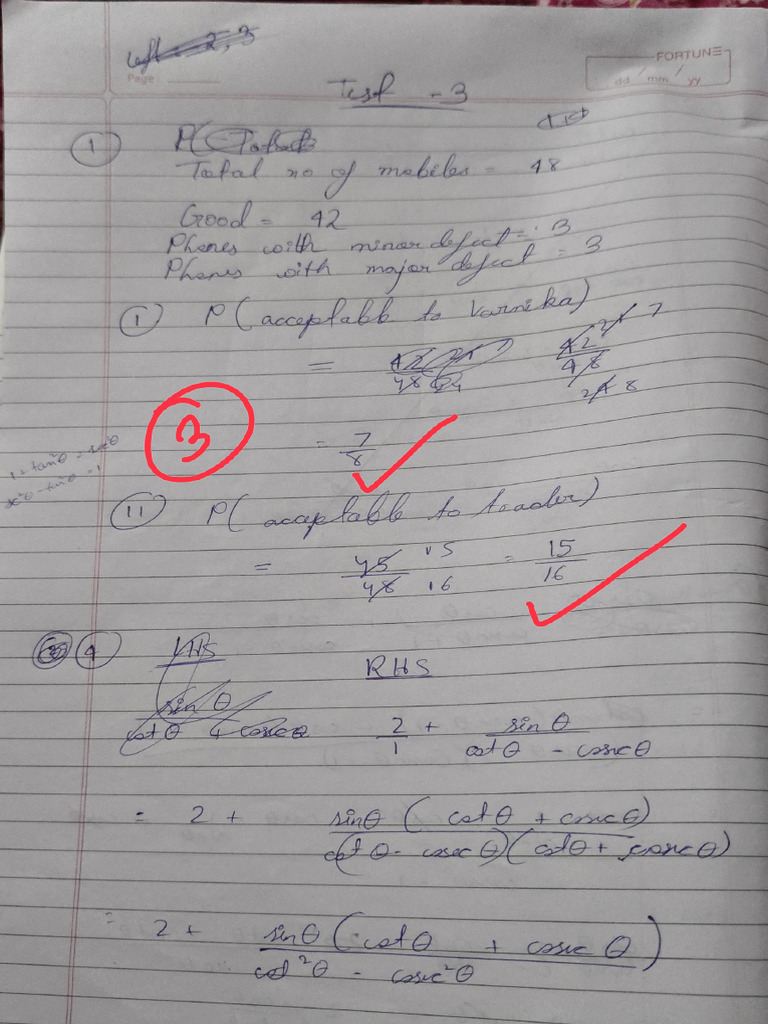 FORTUNE
Page:
dd / mm / yy
Test - 3
1
Total no of mobiles = 48
Good = 42
Phones with minor defect = 3
Phones with major defect = 3
(I) P(acceptable to Varnika)
= 42/48
3
= 7/8
1 + tan²θ = sec²θ
sec²θ - tan²θ = 1
(II) P(acceptable to trader)
= 45/48 15/16 = 15/16
4 LHS RHS
sinθ/(cotθ + cosecθ) 2/1 + sinθ/(cotθ - cosecθ)
= 2 + sinθ(cotθ + cosecθ)/(cotθ - cosecθ)(cotθ + cosecθ)
= 2 + sinθ(cotθ + cosecθ)/cot²θ - cosec²θ